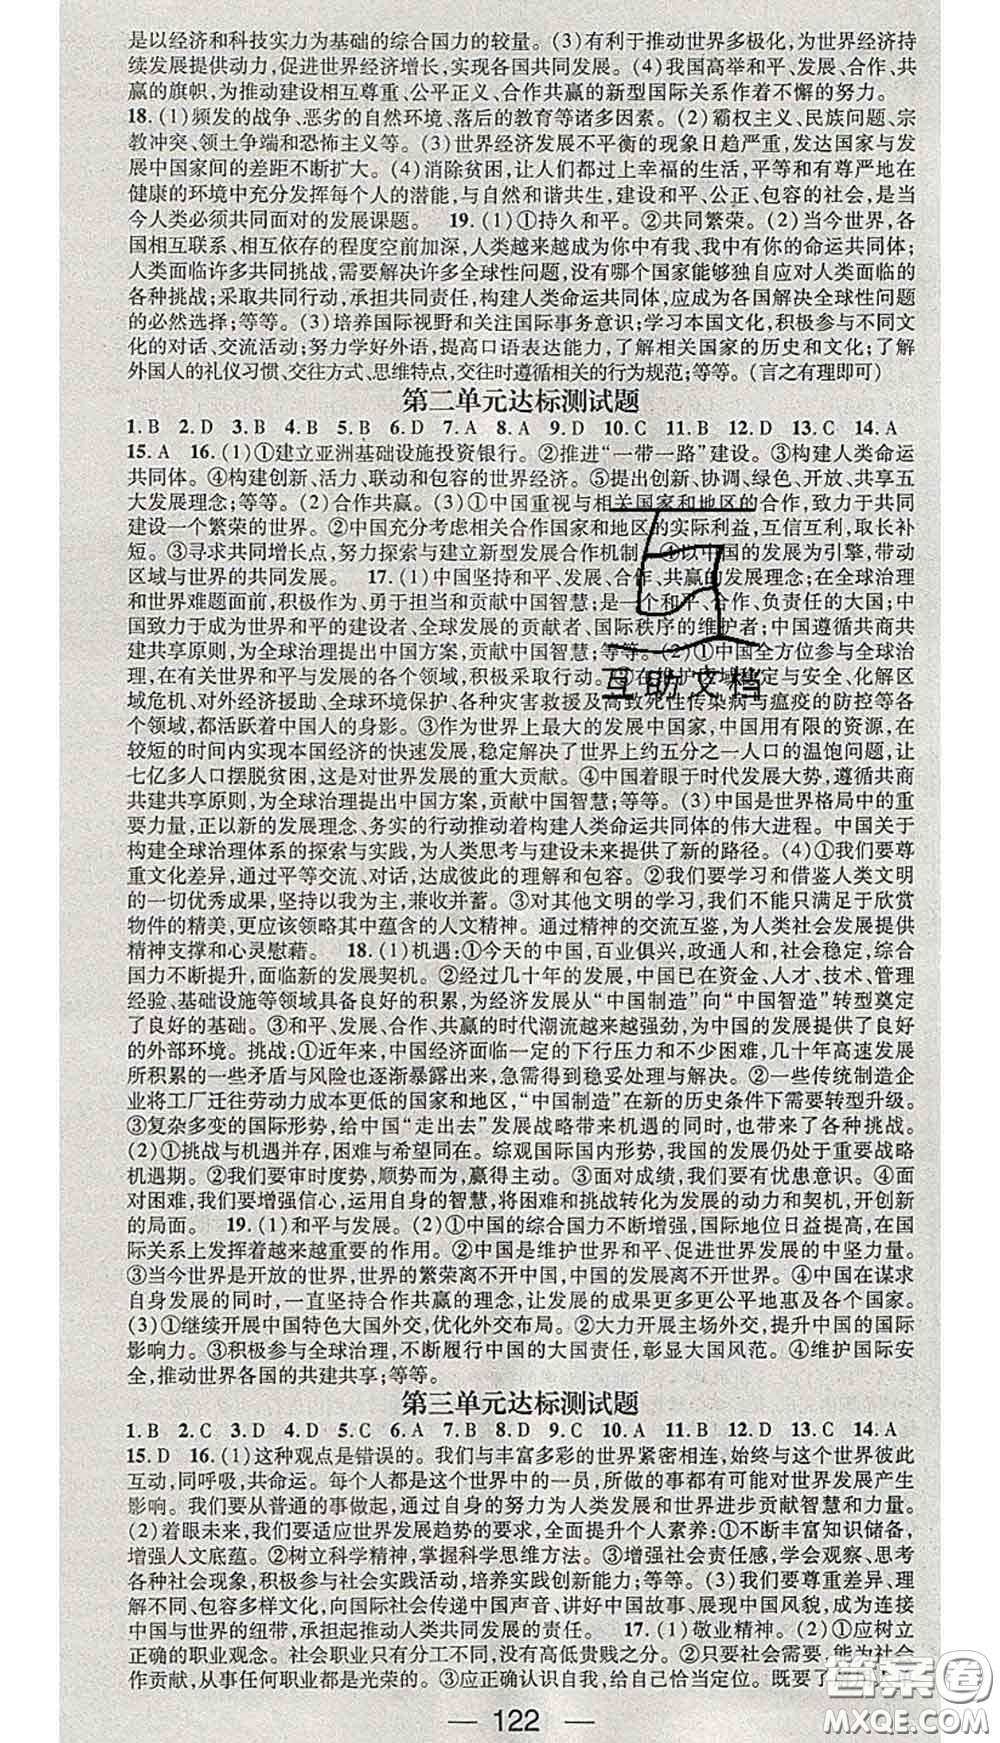 是以经济和科技实力为基础的综合国力的较量。(3)有利于推动世界多极化,为世界经济持
续发展提供动力,促进世界经济增长,实现各国共同发展。(4)我国高举和平、发展、合作、共
赢的旗帜,为推动建设相互尊重、公平正义、合作共赢的新型国际关系作着不懈的努力。
18.(1)频发的战争、恶劣的自然环境、落后的教育等诸多因素。(2)霸权主义、民族问题、宗
教冲突、领土争端和恐怖主义等。(3)世界经济发展不平衡的现象日趋严重,发达国家与发
展中国家间的差距不断扩大。(4)消除贫困,让人们都过上幸福的生活,平等和有尊严地在
健康的环境中充分发挥每个人的潜能,与自然和谐共生,建设和平、公正、包容的社会,是当
今人类必须共同面对的发展课题。 19.(1)①持久和平。②共同繁荣。(2)当今世界,各
国相互联系、相互依存的程度空前加深,人类越来越成为你中有我、我中有你的命运共同体;
人类面临许多共同挑战,需要解决许多全球性问题,没有哪个国家能够独自应对人类面临的
各种挑战;采取共同行动,承担共同责任,构建人类命运共同体,应成为各国解决全球性问题
的必然选择;等等。(3)培养国际视野和关注国际事务意识;学习本国文化,积极参与不同文
化的对话、交流活动;努力学好外语,提高口语表达能力,了解相关国家的历史和文化;了解
外国人的礼仪习惯、交往方式、思维特点,交往时遵循相关的行为规范;等等。(言之有理即可)
第二单元达标测试题
1.B 2.D 3.B 4.B 5.B 6.D 7.A 8.A 9.D 10.C 11.B 12.D 13.C 14.A
15.A 16.(1)①建立亚洲基础设施投资银行。②推进“一带一路”建设。③构建人类命运
共同体。④构建创新、活力、联动和包容的世界经济。⑤提出创新、协调、绿色、开放、共享五
大发展理念;等等。(2)合作共赢。(3)①中国重视与相关国家和地区的合作,致力于共同
建设一个繁荣的世界。②中国充分考虑相关合作国家和地区的实际利益,互信互利,取长补
短。③寻求共同增长点,努力探索与建立新型发展合作机制。④以中国的发展为引擎,带动
区域与世界的共同发展。 17.(1)中国坚持和平、发展、合作、共赢的发展理念;在全球治理
和世界难题面前,积极作为、勇于担当和贡献中国智慧;是一个和平、合作、负责任的大国;中
国致力于成为世界和平的建设者、全球发展的贡献者、国际秩序的维护者;中国遵循共商共
建共享原则,为全球治理提出中国方案,贡献中国智慧;等等。(2)①中国全方位参与全球治理,
在有关世界和平与发展的各个领域,积极采取行动。②在维护区域稳定与安全、化解区
域危机、对外经济援助、全球环境保护、各种灾害救援及高致死性传染病与瘟疫的防控等各
个领域,都活跃着中国人的身影。③作为世界上最大的发展中国家,中国用有限的资源,在
较短的时间内实现本国经济的快速发展,稳定解决了世界上约五分之一人口的温饱问题,让
七亿多人口摆脱贫困,这是对世界发展的重大贡献。④中国着眼于时代发展大势,遵循共商
共建共享原则,为全球治理提出中国方案,贡献中国智慧;等等。(3)中国是世界格局中的重
要力量,正以新的发展理念、务实的行动推动着构建人类命运共同体的伟大进程。中国关于
构建全球治理体系的探索与实践,为人类思考与建设未来提供了新的路径。(4)①我们要尊
重文化差异,通过平等交流、对话,达成彼此的理解和包容。②我们要学习和借鉴人类文明
的一切优秀成果,坚持以我为主,兼收并蓄。③对其他文明的学习,我们不能只满足于欣赏
物件的精美,更应该领略其中蕴含的人文精神。通过精神的交流互鉴,为人类社会发展提供
精神支撑和心灵慰藉。 18.(1)机遇:①今天的中国,百业俱兴,政通人和,社会稳定,综合
国力不断提升,面临新的发展契机。②经过几十年的发展,中国已在资金、人才、技术、管理
经验、基础设施等领域具备良好的积累,为经济发展从“中国制造”向“中国智造”转型奠定
了良好的基础。③和平、发展、合作、共赢的时代潮流越来越强劲,为中国的发展提供了良好
的外部环境。挑战:①近年来,中国经济面临一定的下行压力和不少困难,几十年高速发展
所积累的一些矛盾与风险也逐渐暴露出来,急需得到稳妥处理与解决。②一些传统制造企
业将工厂迁往劳动力成本更低的国家和地区,“中国制造”在新的历史条件下需要转型升级。
③复杂多变的国际形势,给中国“走出去”发展战略带来机遇的同时,也带来了各种挑战。
(2)①挑战与机遇并存,困难与希望同在。综观国际国内形势,我国的发展仍处于重要战略
机遇期。②我们要审时度势,顺势而为,赢得主动。③面对成绩,我们要有忧患意识。④面
对困难,我们要增强信心,运用自身的智慧,将困难和挑战转化为发展的动力和契机,开创新
的局面。 19.(1)和平与发展。(2)①中国的综合国力不断增强,国际地位日益提高,在国
际关系上发挥着越来越重要的作用。②中国是维护世界和平、促进世界发展的中坚力量。
③当今世界是开放的世界,世界的繁荣离不开中国,中国的发展离不开世界。④中国在谋求
自身发展的同时,一直坚持合作共赢的理念,让发展的成果更多更公平地惠及各个国家。
(3)①继续开展中国特色大国外交,优化外交布局。②大力开展主场外交,提升中国的国际
影响力。③积极参与全球治理,不断履行中国的大国责任,彰显大国风范。④维护国际安
全,推动世界各国的共建共享;等等。
第三单元达标测试题
1.B 2.C 3.D 4.D 5.C 6.A 7.B 8.D 9.C 10.A 11.B 12.D 13.C 14.A
15.D 16.(1)这种观点是错误的。我们与丰富多彩的世界紧密相连,始终与这个世界彼此
互动,同呼吸,共命运。每个人都是这个世界中的一员,所做的事都有可能对世界发展产生
影响。我们要从普通的事做起,通过自身的努力为人类发展和世界进步贡献智慧和力量。
(2)着眼未来,我们要适应世界发展趋势的要求,全面提升个人素养:①不断丰富知识储备,
增强人文底蕴。②树立科学精神,掌握科学思维方法。③增强社会责任感,学会观察、思考
各种社会现象,积极参与社会实践活动,培养实践创新能力;等等。(3)我们要尊重差异、理
解不同、包容多样文化,向国际社会传递中国声音、讲好中国故事、展现中国风貌,成为连接
中国与世界的纽带,承担起推动人类共同发展的责任。 17.(1)敬业精神。(2)①应树立
正确的职业观念。社会职业只有分工不同,没有高低贵贱之分。②只要社会需要,能为社会
作贡献,从事任何职业都是光荣的。③应正确认识自我,给自己恰当定位。既要了
— 122 —
互助文档
答案圈
MXQE.COM